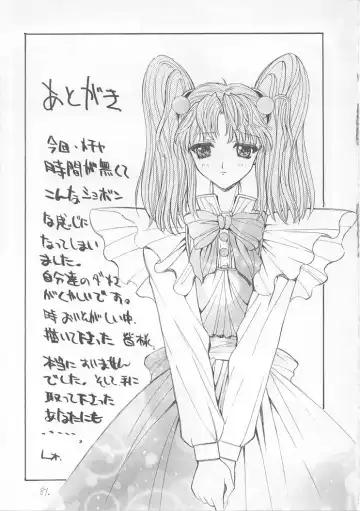 あとがき
今回・メチャ
時間が無くて
こんなショボン
な感じに
なってしまい
ました。
自分達のダメさ
がくやしいです。
時おいそがしい中、
描いて下さった皆様、
本当にすいません
でした。そして手に
取って下さった
あなたにも
‥‥‥。
81.